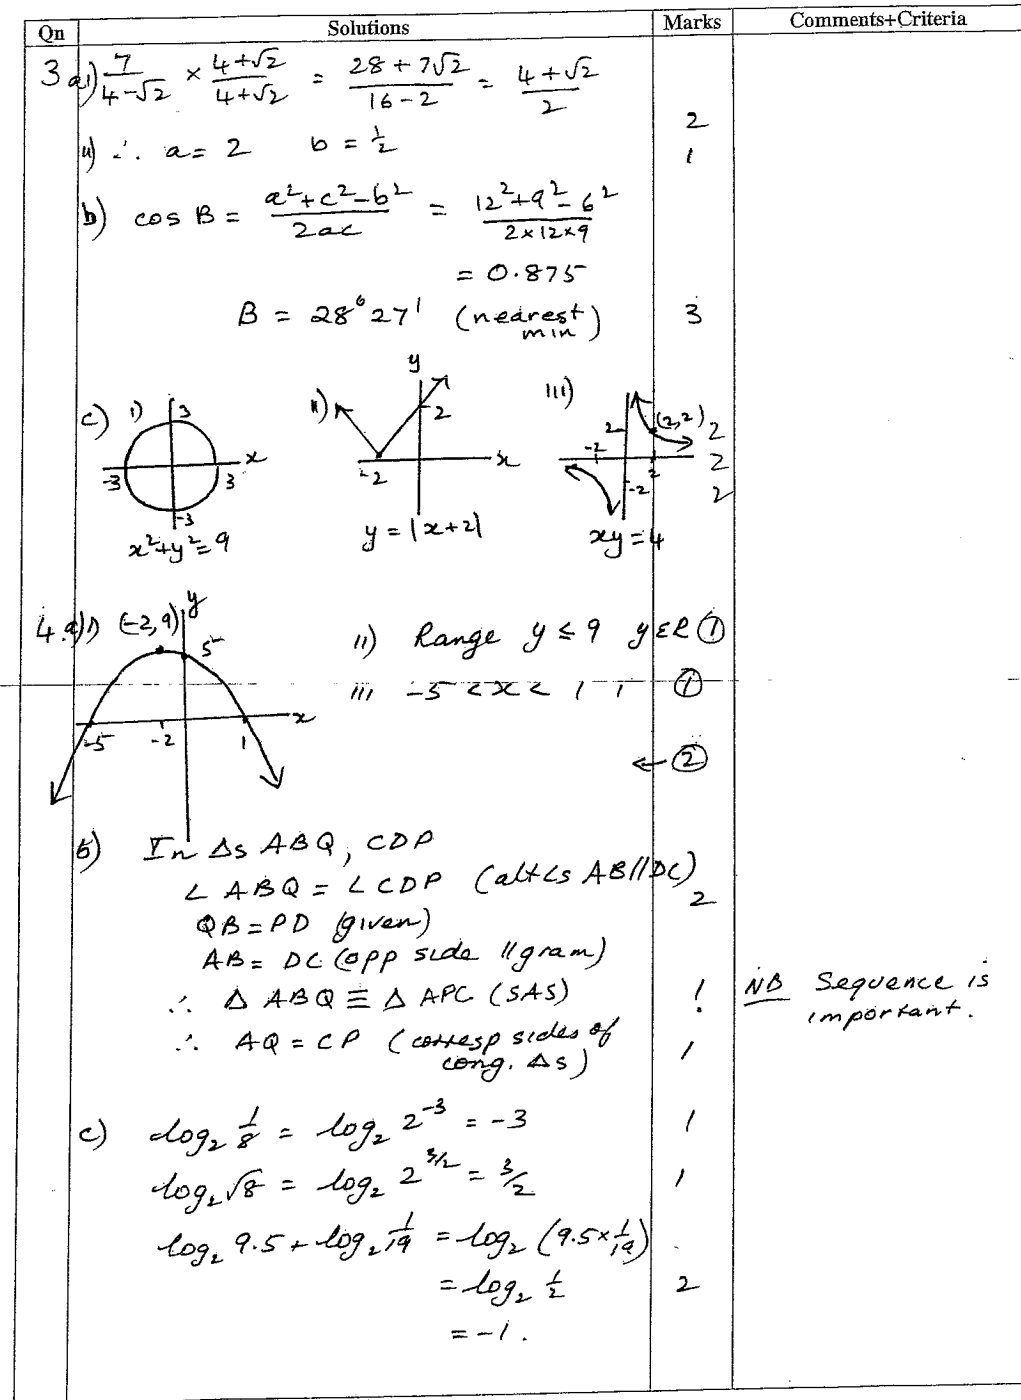 Qn Solutions Marks Comments+Criteria
3 a i) 7/(4-√2) × (4+√2)/(4+√2) = (28+7√2)/(16-2) = (4+√2)/2
2
ii) ∴ a = 2 b = 1/2 1
b) cos B = (a²+c²-b²)/2ac = (12²+9²-6²)/(2×12×9)
= 0.875
B = 28°27' (nearest min) 3
c) i) 3 -3 3 -3 x
x²+y²=9
ii) y 2 -2 x
y = |x+2|
iii) (2,2) 2 -2 2 -2
xy = 4
2
2
2
4. a) i) (-2,9) y 5 -5 -2 1 x
ii) Range y ≤ 9 y ε R ①
iii -5 < x < 1 ①
← ②
b) In Δs ABQ, CDP
∠ABQ = ∠CDP (alt ∠s AB||DC)
2
QB = PD (given)
AB = DC (opp side ||gram)
∴ Δ ABQ ≡ Δ APC (SAS) 1 NB Sequence is
important.
∴ AQ = CP (corresp sides of
cong. Δs) 1
c) log₂ 1/8 = log₂ 2⁻³ = -3 1
log₂ √8 = log₂ 2^3/2 = 3/2 1
log₂ 9.5 + log₂ 1/19 = log₂ (9.5×1/19)
= log₂ 1/2 2
= -1.